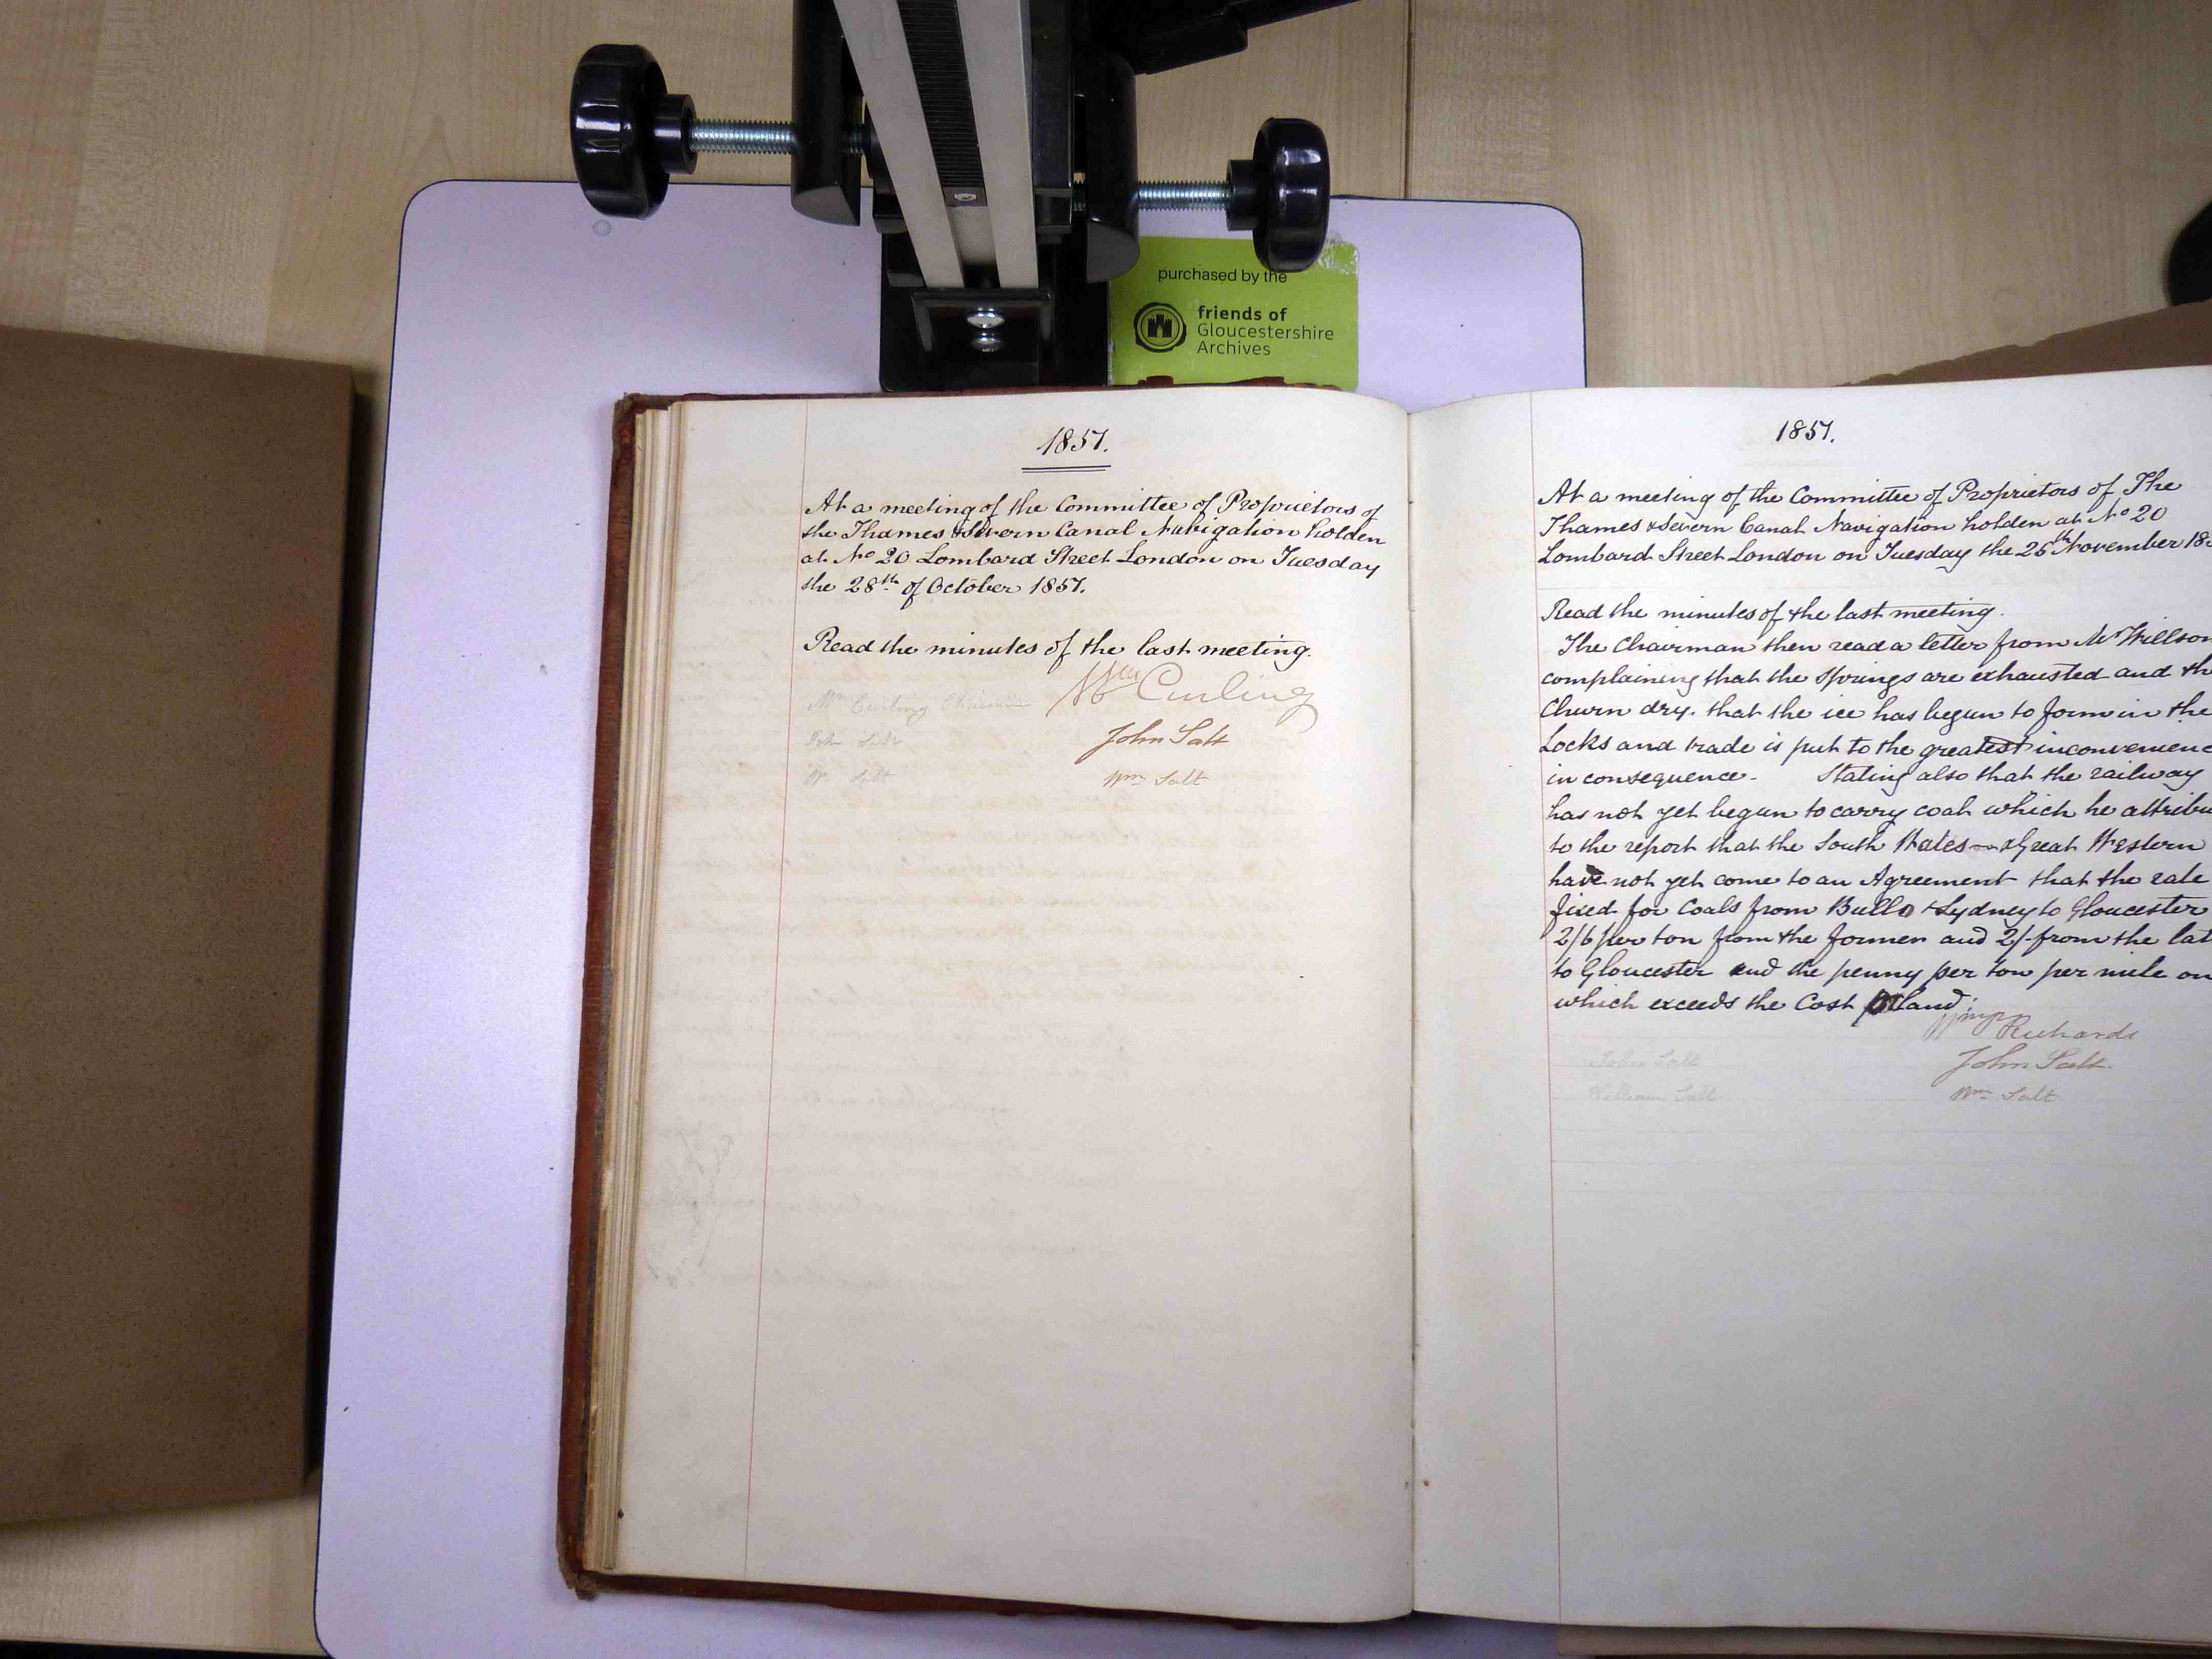 purchased by the
friends of
Gloucestershire
Archives
1851.
At a meeting of the Committee of Proprietors of
the Thames & Severn Canal Navigation holden
at No 20 Lombard Street London on Tuesday
the 28th of October 1851.
Read the minutes of the last meeting.
Wm Curling Chairman
Wm Curling
John Salt
John Salt
Wm Salt
Wm Salt
1851.
At a meeting of the Committee of Proprietors of The
Thames & Severn Canal Navigation holden at No 20
Lombard Street London on Tuesday the 25th November 18
Read the minutes of the last meeting.
The Chairman then read a letter from Mr Willson
complaining that the Springs are exhausted and th
Churn dry. that the ice has begun to form in the
Locks and trade is put to the greatest inconvenienc
in consequence. Stating also that the railway
has not yet begun to carry coal which he attribu
to the report that the South Wales & Great Western
have not yet come to an Agreement that the rate
fixed for Coals from Bullo & Lydney to Gloucester
2/6 per ton from the former and 2/- from the lat
to Gloucester and the penny per ton per mile on
which exceeds the Cost land.
Richards
John Salt
John Salt
William Salt
Wm Salt